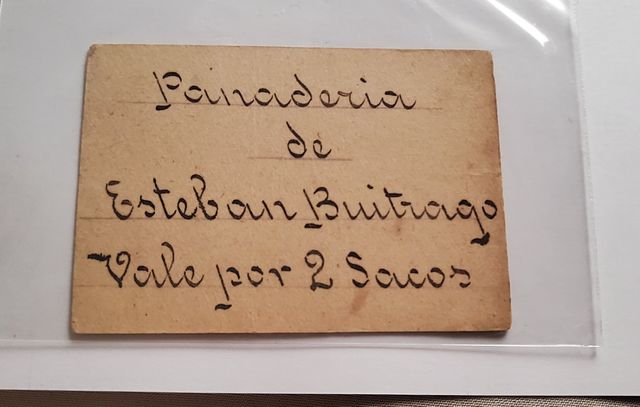 Panaderia
de
Esteban Buitrago
Vale por 2 Sacos